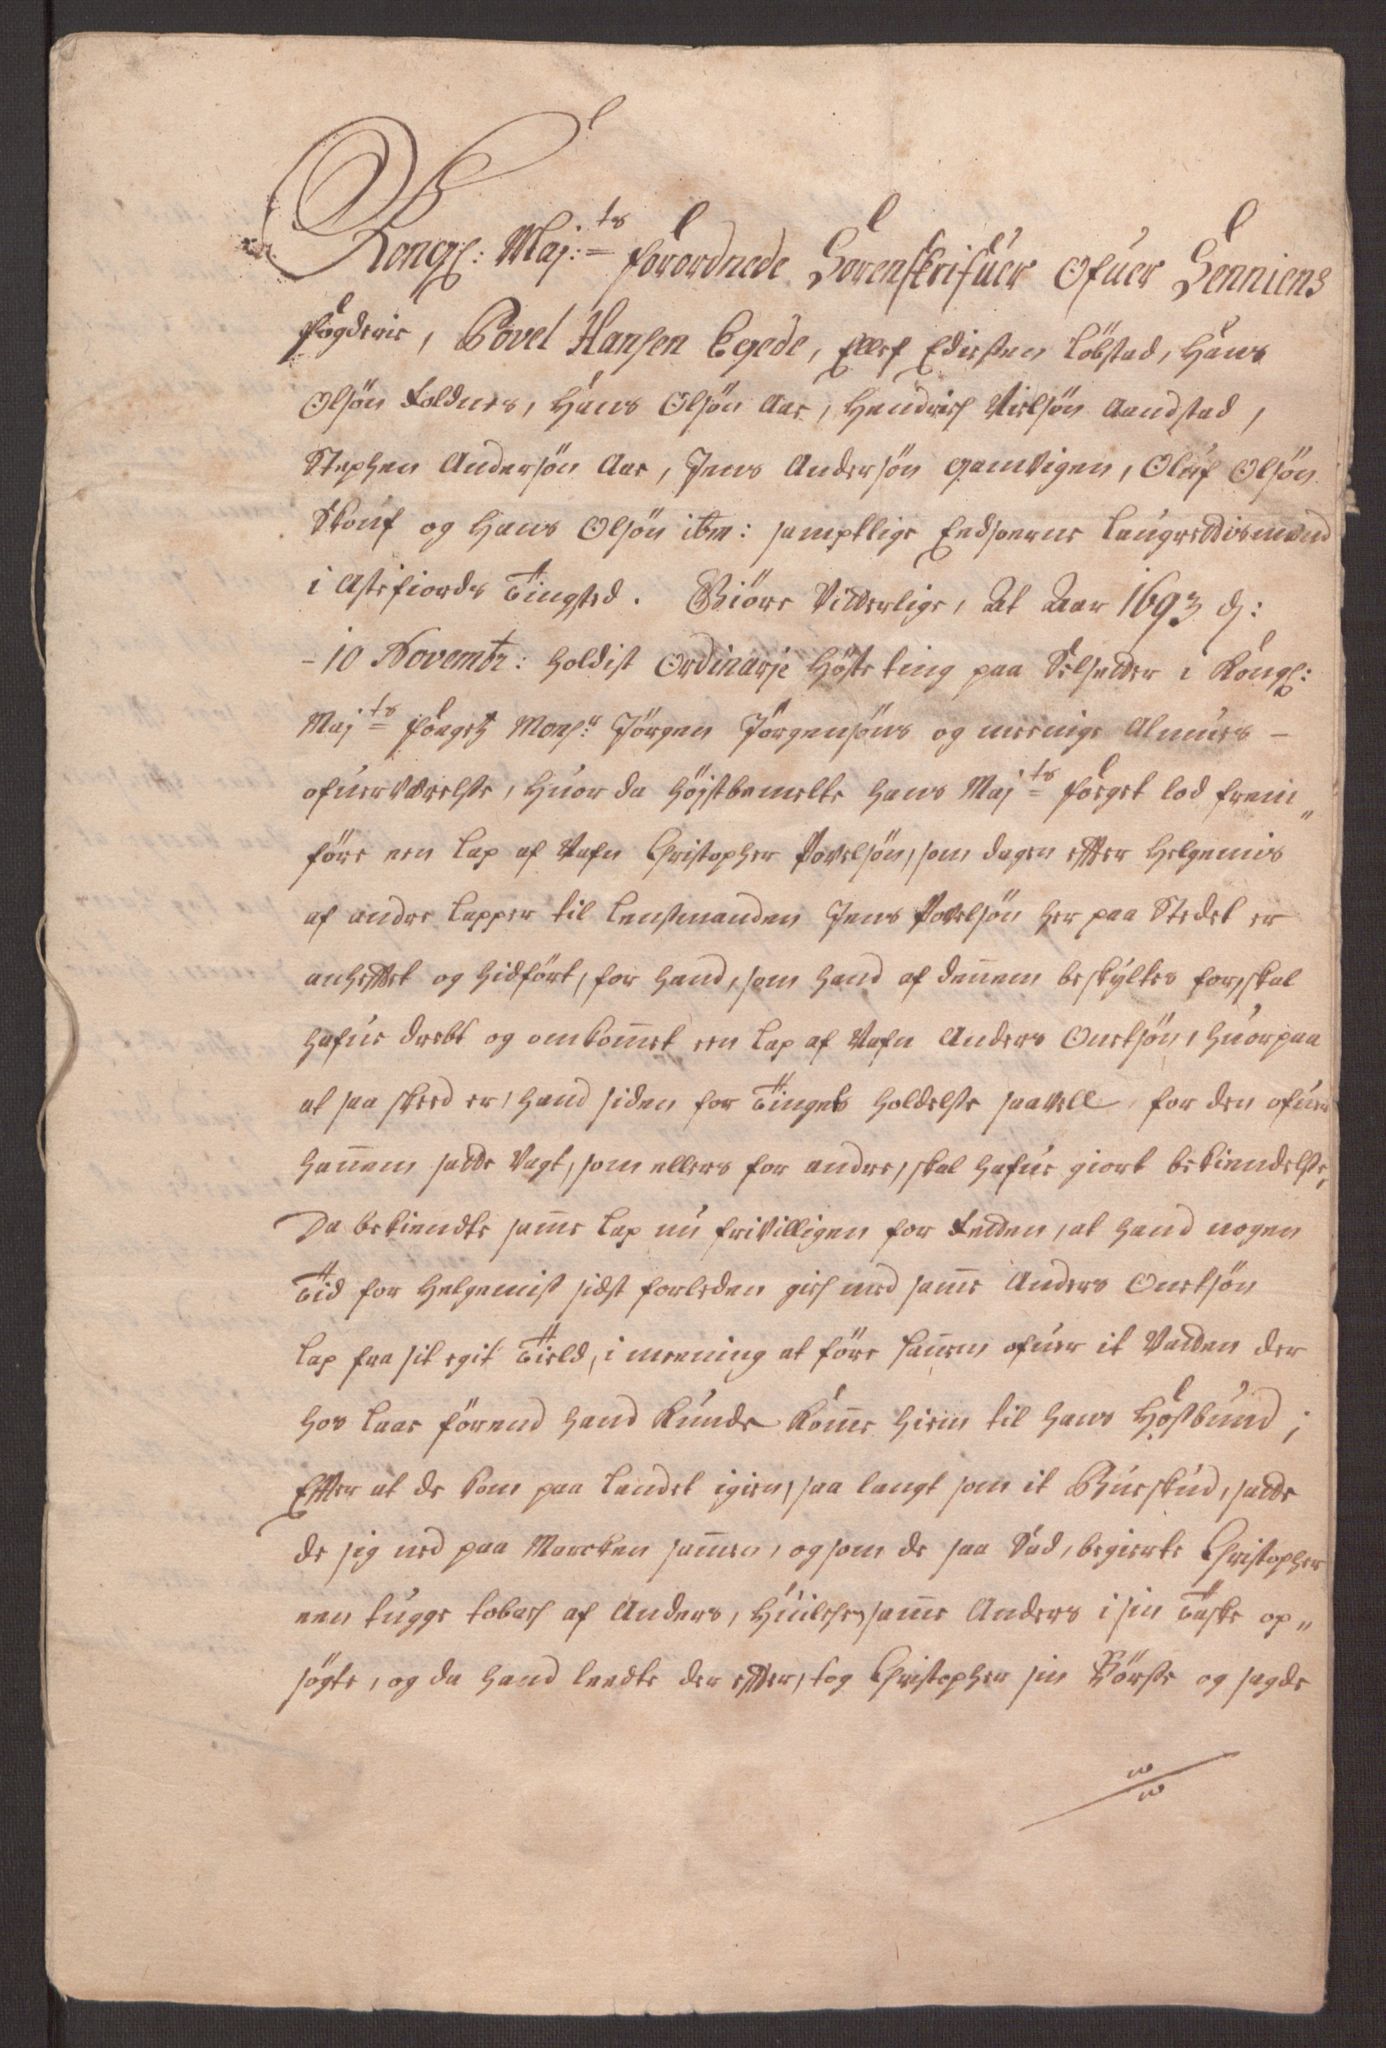 Kongl: Maj:ts forordnede Sorenskrifuer Ofuer Senniens
fogderie, Povel Hansen Egede, Ellef Löbstad, Hans
Olsön Foldnes, Hans Olsön Aae, Hendrich Nielsön Aandstad,
Stephen Andersön Aae, Jens Andersön Gamvigen, Oluf Olsön
Skouf og Hans Olsön ibm: samptlige Eedsoerne Laugrettismænd
i Astefiords Tingsted. Giöre Vitterlige, At Aar 1693 d:
-10 Novembr: Holdist Ordinarje Höste ting paa Selsetter i Kongl:
Majts fougetz Monsr: Jörgen Jörgensöns og meenige Almues-
ofuerværelse, Huor da Höjstbemelte Hans Majts foeget lod frem„
före een Lap af Nafn Christopher Povelsön, som dagen effter Helgemis
af andre Lapper til Lensmanden Jens Povelsön her paa Stedet er
anheftet og hidfört, for hand, som hand af dennem beskyltes for, skal
hafue drebt og omkommet een Lap af Nafn Anders Onetsön, Huorpaa
at saa skeed er, hand siden for Tingets Holdelse saavell for den ofuer
hannem sadde Vagt, som ellers for andre, skal hafue giort bekiendelse,
Da bekiendte samme Lap nu frivilligen for Retten, at hand nogen
Tid for Helgemis sidst forleden gich med samme Anders Onetsön
Lap fra sit egit Field, i meening at före hannem ofuer it Vatten der
hos laae förend hand kunde komme hiem til Hans Höstbund;
Effter at de kom paa Landet igien, saa langt som it Bueskud, satte
de sig ned paa Marcken sammen, og som de saa Sad, begierte Christopher
een tugge tobach af Anders, Huilchen samme Anders i sin Taske op„
sögte, og da hand leedte der effter, tog Christopher sin Börse og sagde